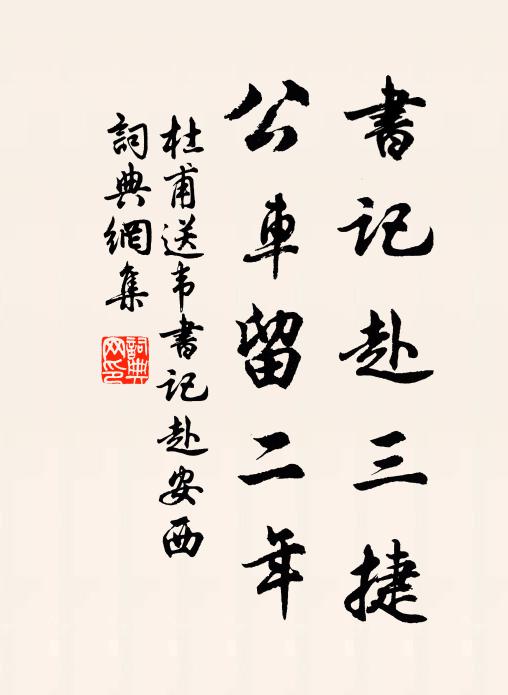 書記赴三捷
公車留二年
杜甫送韦書记赴安西
詞典網集
詞典网印